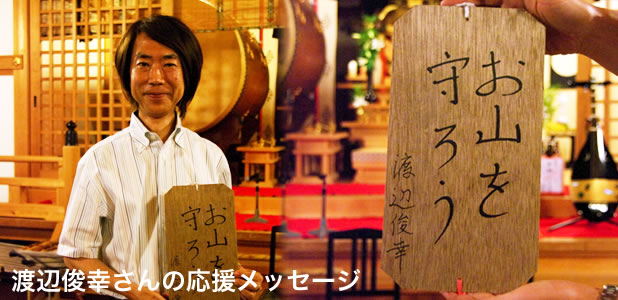 お山を
守ろう
お山を
守ろう
渡辺俊幸
渡辺俊幸さんの応援メッセージ